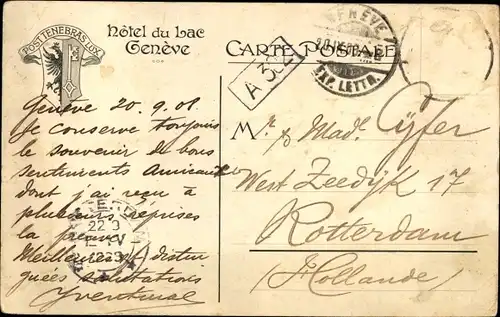 POST TENEBRAS LUX
Hôtel du Lac
Genève
CARTE POSTALE
GENÈVE
EXP. LETTR.
A 382
Genève 20.9.01.
Je conserve toujours
le souvenir de bons
sentiments
dont j'ai reçu à
plusieurs reprises
la preuve
Meilleures distin
guées salutations
Mr & Madl. Cyfer
West Zeedijk 17
Rotterdam
(Hollande)